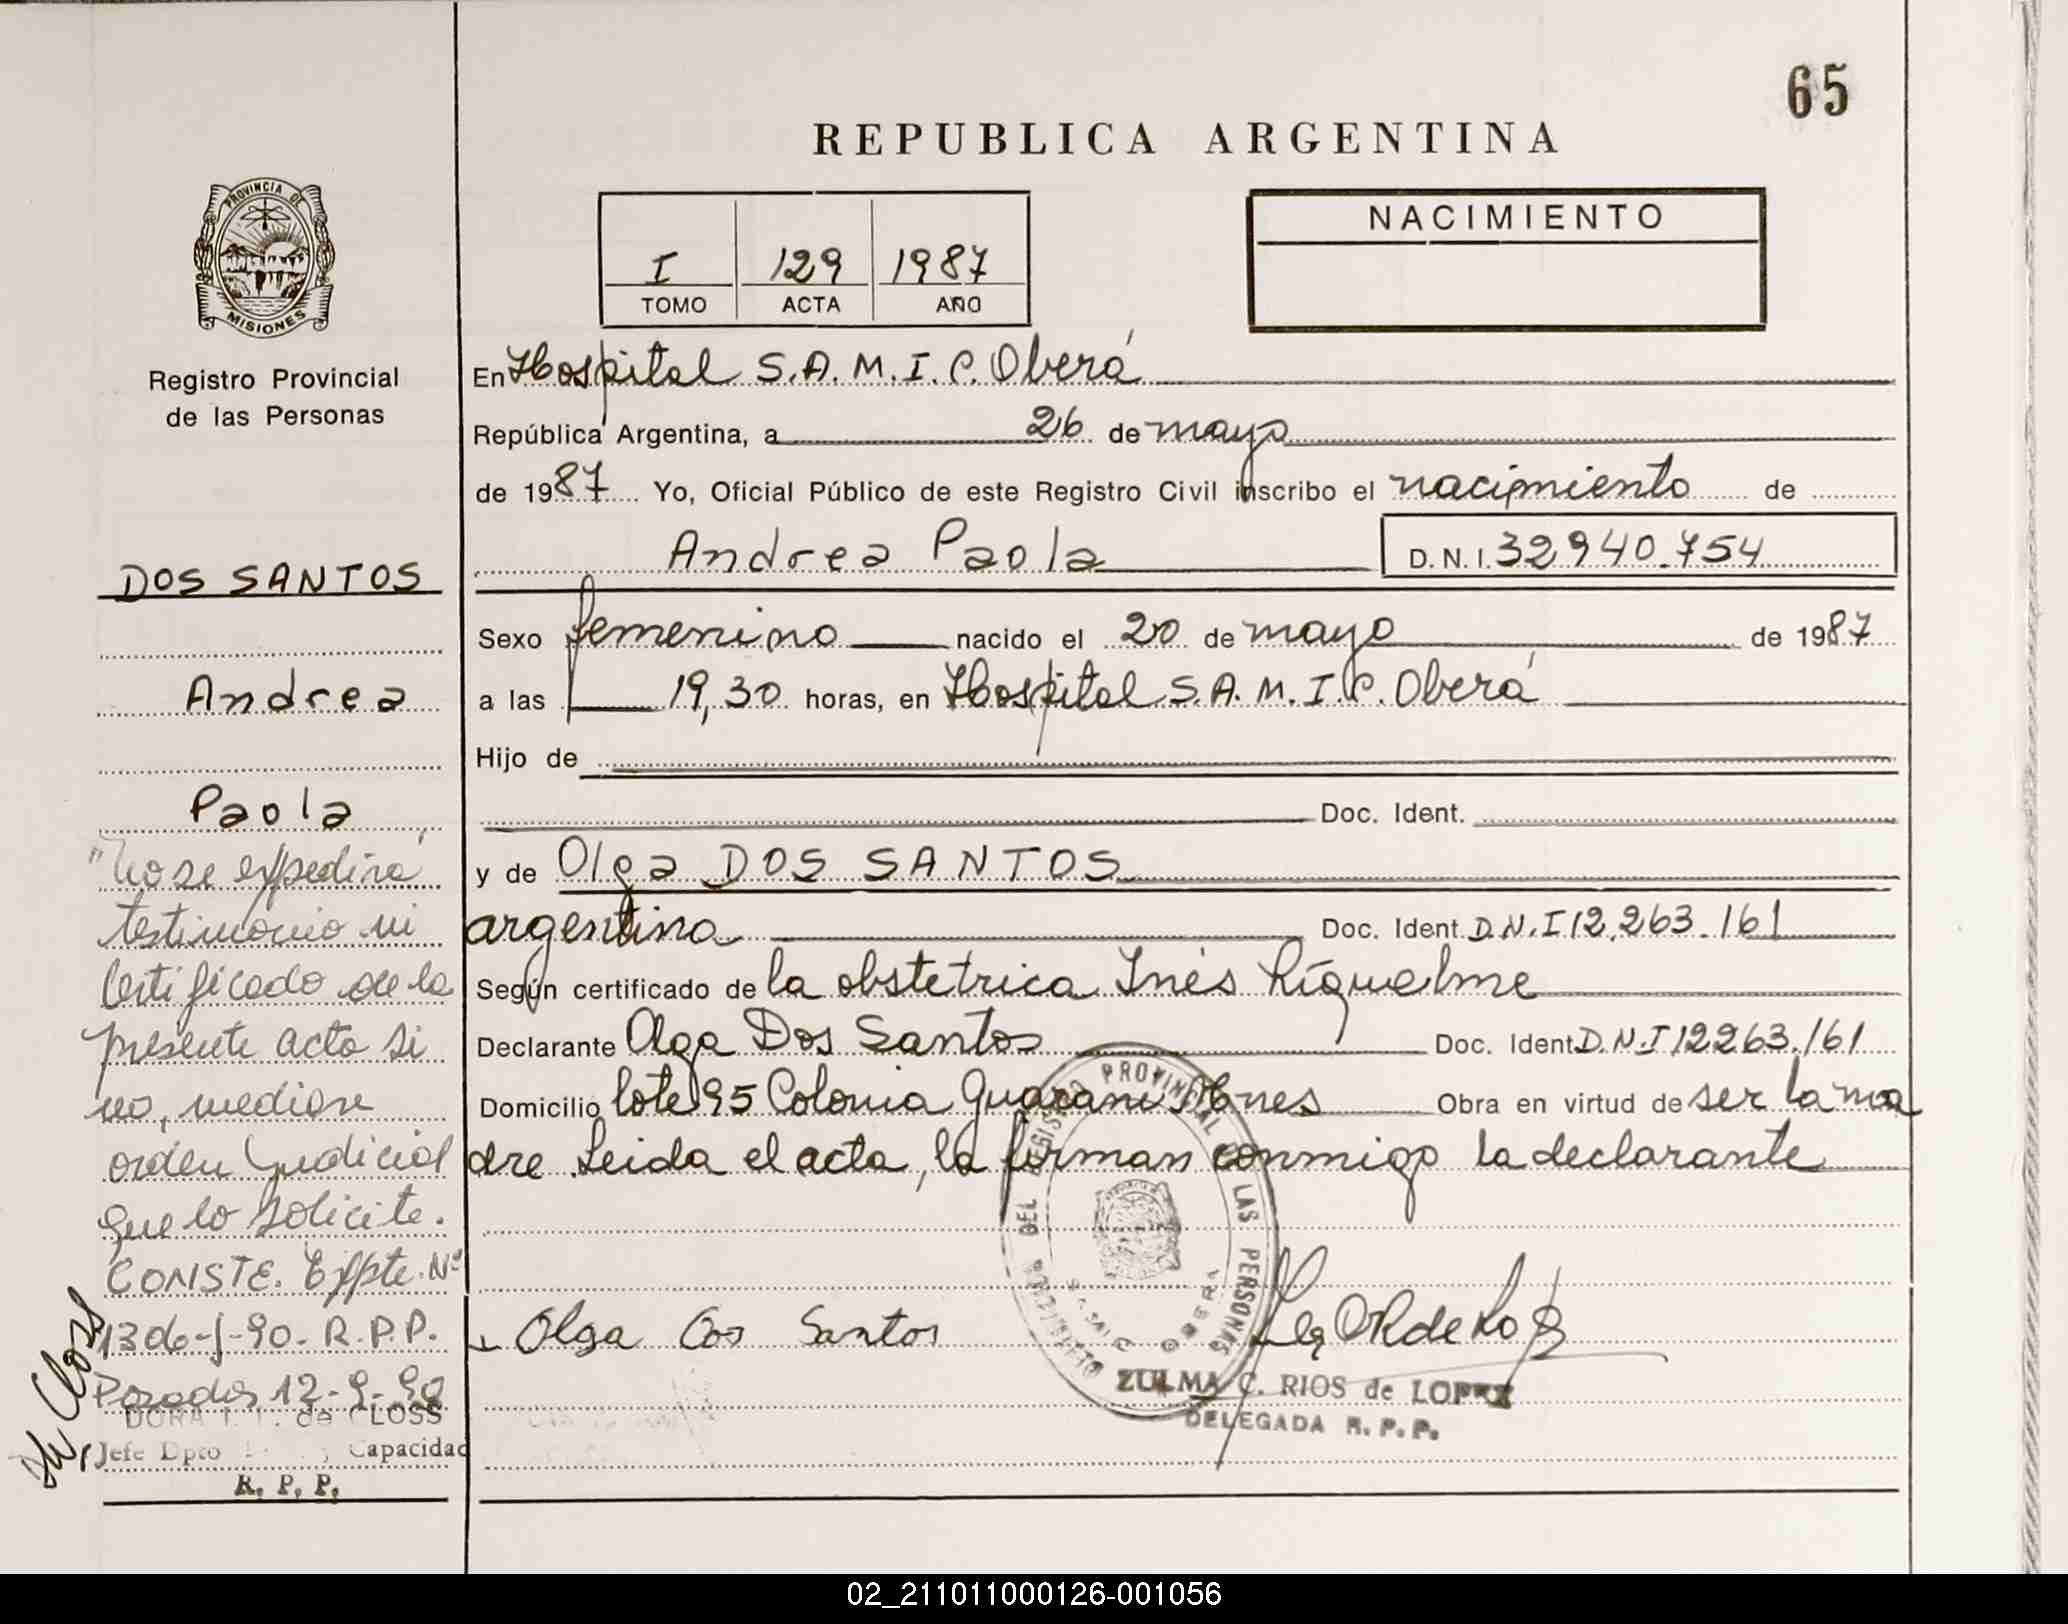 65
REPUBLICA ARGENTINA
PROVINCIA DE
MISIONES
Registro Provincial
de las Personas
DOS SANTOS
Andrea
Paola
"No se expedirá
testimonio ni
certificado de la
presente acta si
no, mediare
orden judicial
que lo solicite.
CONSTE. Expte. Nº
1306-J-90-R.P.P.
Posadas 12-9-90
de Closs
DORA de CLOSS
Jefe Dpto Capacidad
R. P. P.
I 129 1987
TOMO ACTA AÑO
NACIMIENTO
En Hospital S.A.M.I.C. Oberá
República Argentina, a 26 de mayo
de 1987 Yo, Oficial Público de este Registro Civil inscribo el nacimiento de
Andrea Paola D.N.I. 32940.754
Sexo femenino nacido el 20 de mayo de 1987
a las 19,30 horas, en Hospital S.A.M.I.C. Oberá
Hijo de
Doc. Ident.
y de Olga DOS SANTOS
argentina Doc. Ident D.N.I 12.263.161
Según certificado de la obstetrica Inés Riquelme
Declarante Olga Dos Santos Doc. Ident D.N.I 12263.161
Domicilio lote 95 Colonia Guarani Mnes Obra en virtud de ser la ma
dre Leida el acta, la firman conmigo la declarante
DEL REGISTRO PROVINCIAL DE LAS PERSONAS
OBERA
Olga Dos Santos
ZULMA C. RIOS de LOPEZ
DELEGADA R. P. P.
02_211011000126-001056